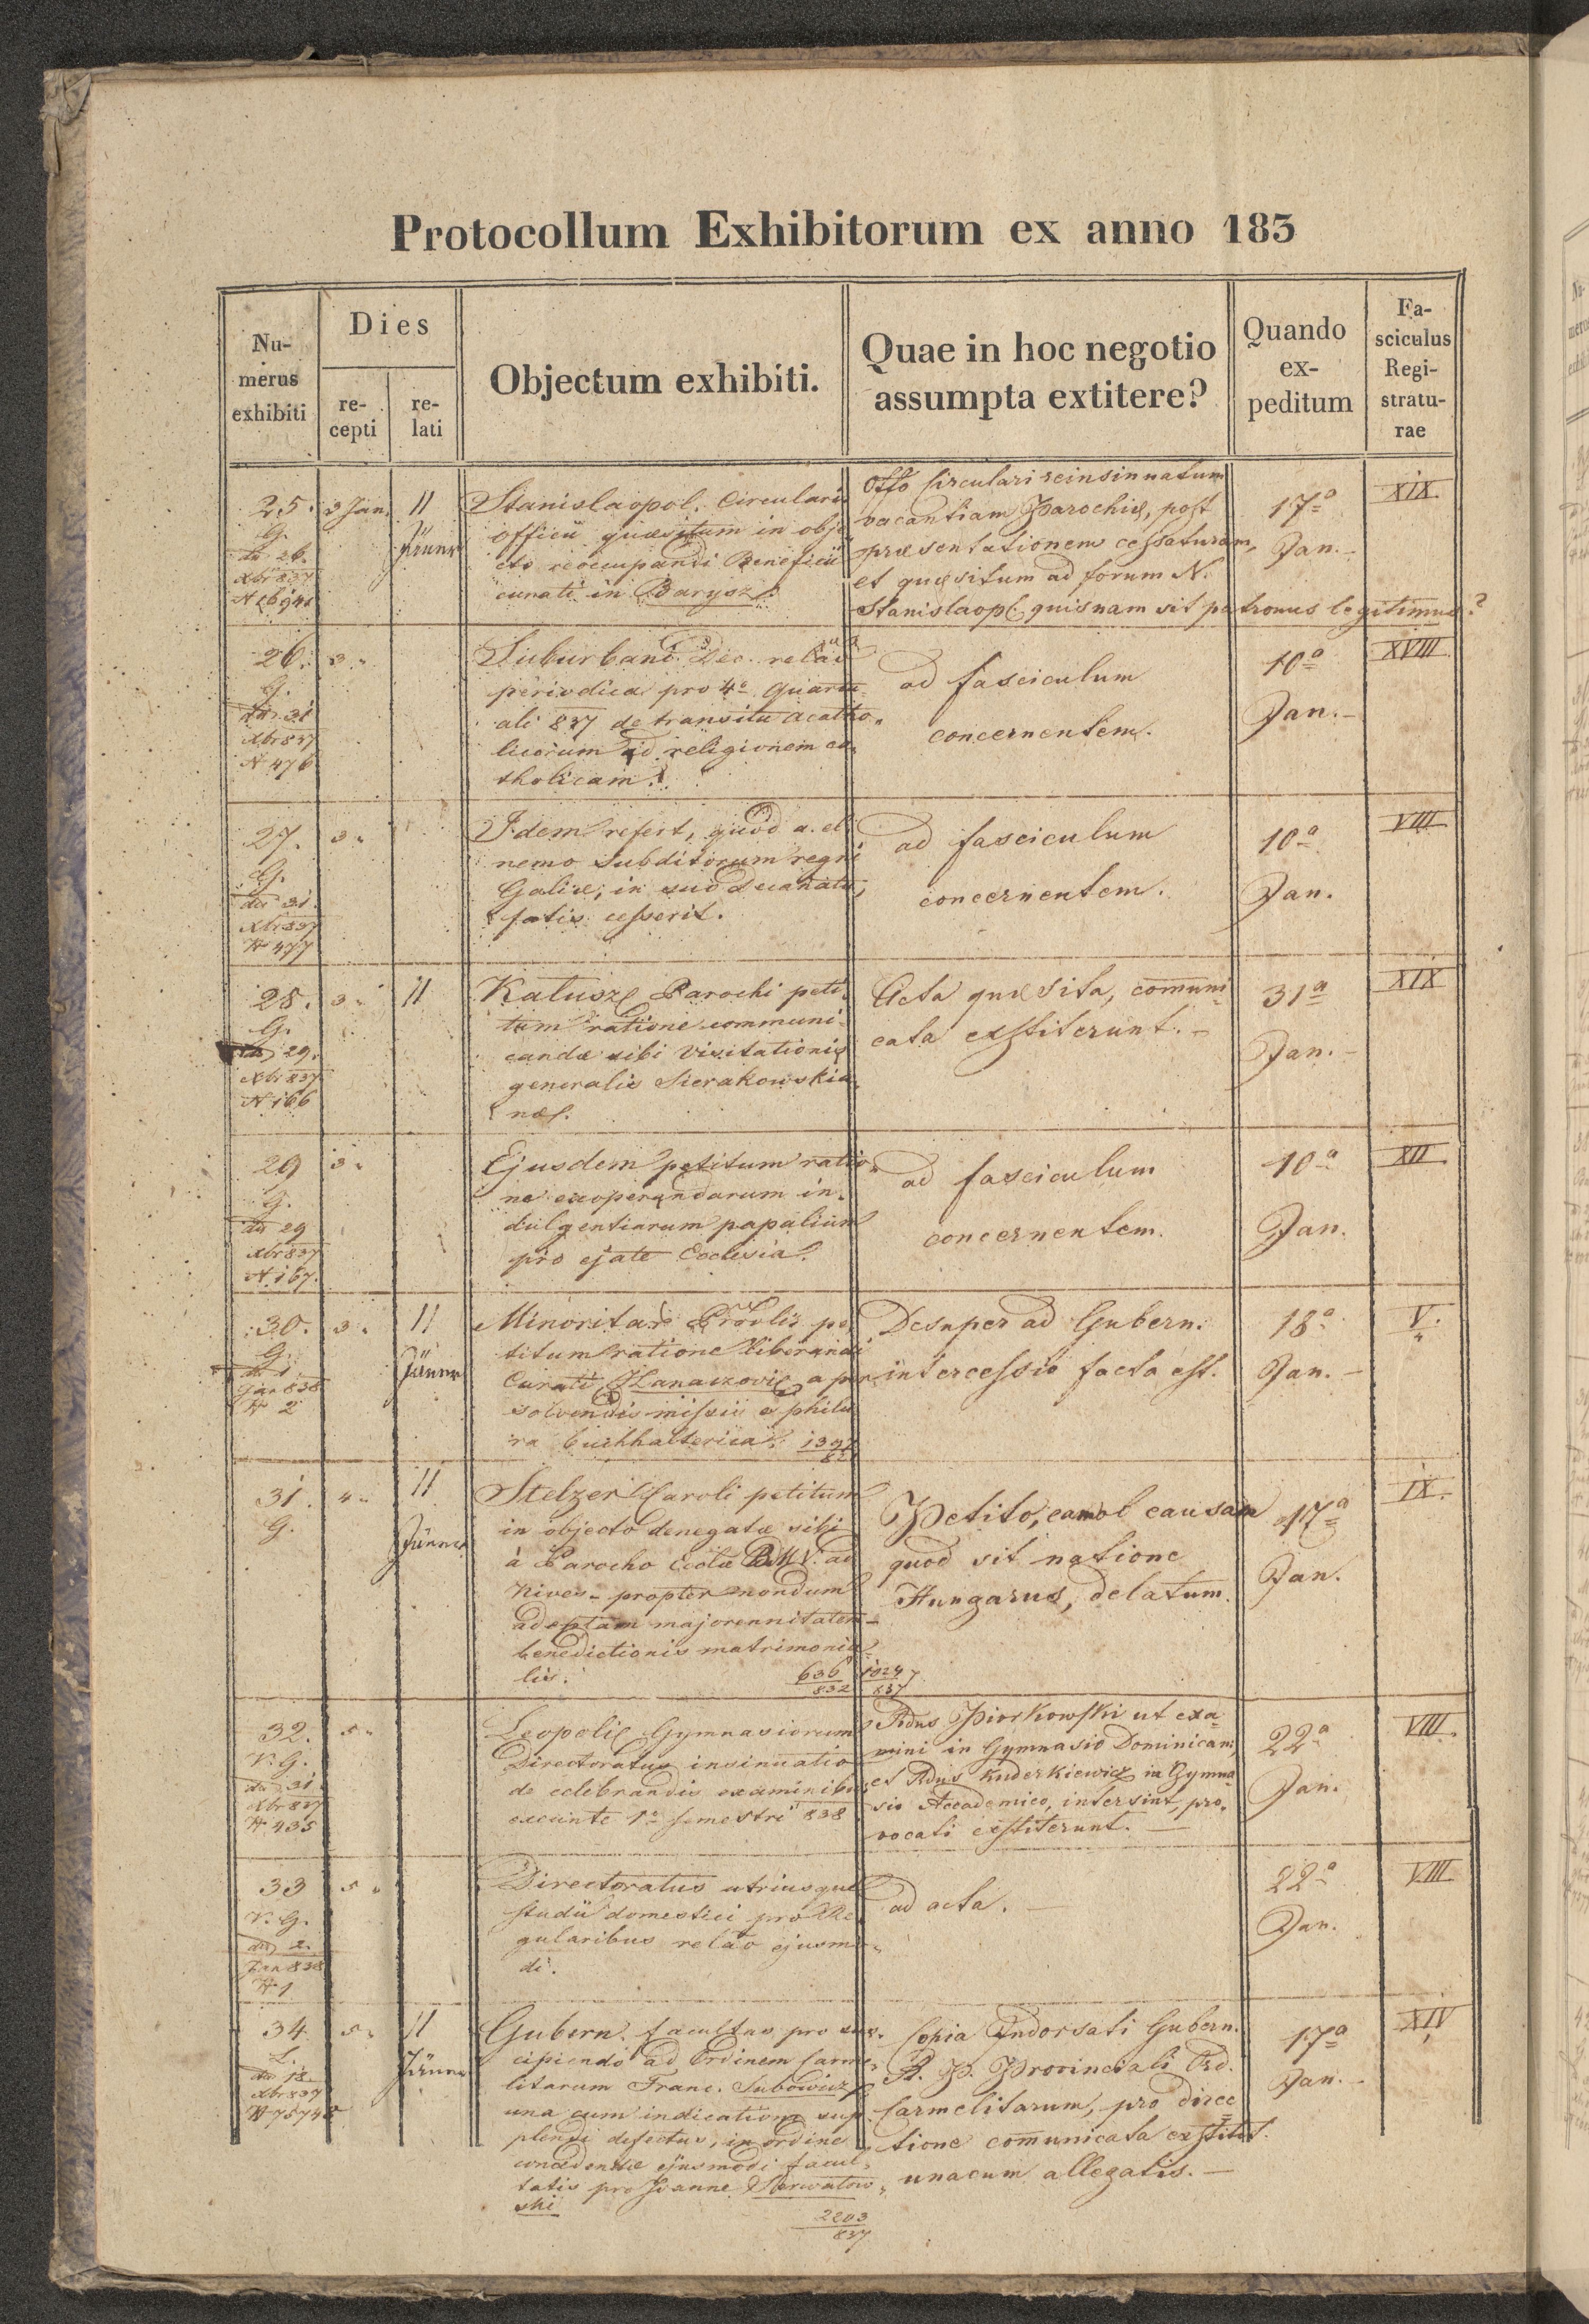 Protocollum Exhibitorum ex anno 183
Nu-
merus
exhibiti
Dies
re-
cepti
re-
lati
Objectum exhibiti.
Quae in hoc negotio
assumpta extitere?
Quando
ex-
peditum
Fa-
sciculus
Regi-
stratu-
rae
25.
G.
dto 26.
Xbr 837
3 Jan.
11
Jänner
Stanislaopol. Circularis
officii quaesitum in obje
cto reoccupandi Beneficii
curati in Barysz.
Offo Circulari reinsinuatum
vacantiam Parochiae, post
praesentationem cessaturam,
et quaesitum ad forum N.
Stanislaopl. quisnam sit patronus legitimus?
17a
Jan.
XIX.
26.
G.
dto 31
Xbr 837
N 476
3 "
Suburbani Dec.
periodica pro 4o Quart
ali 837 de transitu acatho„
licorum ad religionem ca„
tholicam.
ad fasciculum
concernentem.
10a
Jan.
XVIII
27.
G.
dto 31.
Xbr 837
N 477
3 "
Idem refert, quod a. el
nemo subditorum regni
Galiae, in suo Decanatu,
fatis cesserit.
ad fasciculum
concernentem.
10a
Jan.
VIII
28.
G.
dto 29.
Xbr 837
N 166
3 "
11
Katusze Parochi peti
tum ratione communi
candae sibi visitationis
generalis Sierakowskia„
nae.
Acta quaesita, comuni
cata exstiterunt. —
31a
Jan.
XIX
29
G.
dto 29
Xbr 837
N. 167.
3 "
Ejusdem petitum ratio„
ne exoperandarum in„
dulgentiarum papalium
pro ejate Ecclesia.
ad fasciculum
concernentem.
10a
Jan.
XII
30.
G.
dto 1
Jan 838
N 2
3 "
11
Jänner
Minoritar. Provlis pe
titum ratione liberandi
Curati a per
solvendis missis e philu
ra buchhalterica. 1397
Desuper ad Gubern:
intercessio facta est.
18a
Jan. —
V.
31.
G.
4 "
11
Jänner
Stelzer Caroli petitum
in objecto denegatae sibi
à Parocho Ecclae B.M.V. ad
Nives - propter nondum
adeptam majorennitatem
benedictionis matrimonia
lis.
636
832
1024
837
Petito, eam ob causam
quod sit natione
Hungarus, delatum.
17a
Jan.
IX.
32.
V.G.
dto 31
Xbr 837
N 435
5 "
Leopolis Gymnasiorum
Directoratus insinuatio
de celebrandis examinibus
exeunte 1o semestri 838
Rdus Piorkowski ut exa
mini in Gymnasio Dominicam,
et Rdus Kuderkiewicz in Gymna
sio Accademico, intersint, pro„
vocati exstiterunt. —
22a
Jan.
VIII.
33
V.G.
dto 2.
Jan 838
N 1
5 "
Directoratus utriusque
studii domestici pro Re
gularibus relao ejusmo„
di.
ad acta. —
22a
Jan.
VIII
34
L.
dto 18
Xbr 837
N 75748
5 "
11
Jänner
Gubern. facultas pro sus„
cipiendo ad Ordinem Carme„
litarum Franc. Subowicz
una cum indicatione sup
plendi defectus, in ordine
concedendae ejusmodi facul„
tatis pro Joanne
ski
2203
837
Copia Indorsati Gubern.
A. P. Provinciali Ord.
Carmelitarum, pro direc
tione comunicata exstitit.
unacum allegatis. —
17a
Jan.
XIV